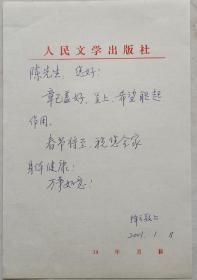 人民文学出版社
陈先生，您好！
章已盖好，呈上，希望能起
作用。
春节将至，祝您全家
身体健康！
万事如意！
2005. 1. 8
19 年 月 日